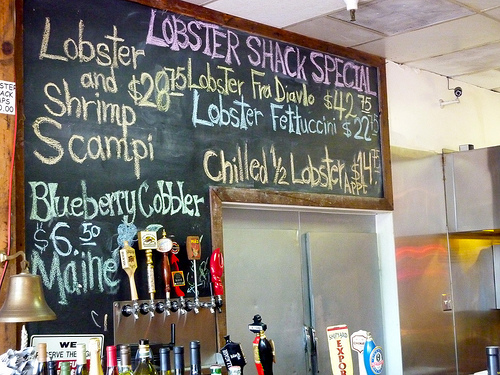 LOBSTER SHACK SPECIAL
Lobster
and
Shrimp
Scampi
$28.75
Lobster Fra Diavlo $42.75
Lobster Fettuccini $22.75
Chilled 1/2 Lobster $14.75
APPT
Blueberry Cobbler
$6.50
Maine
WE
SERVE THE
EXPOR